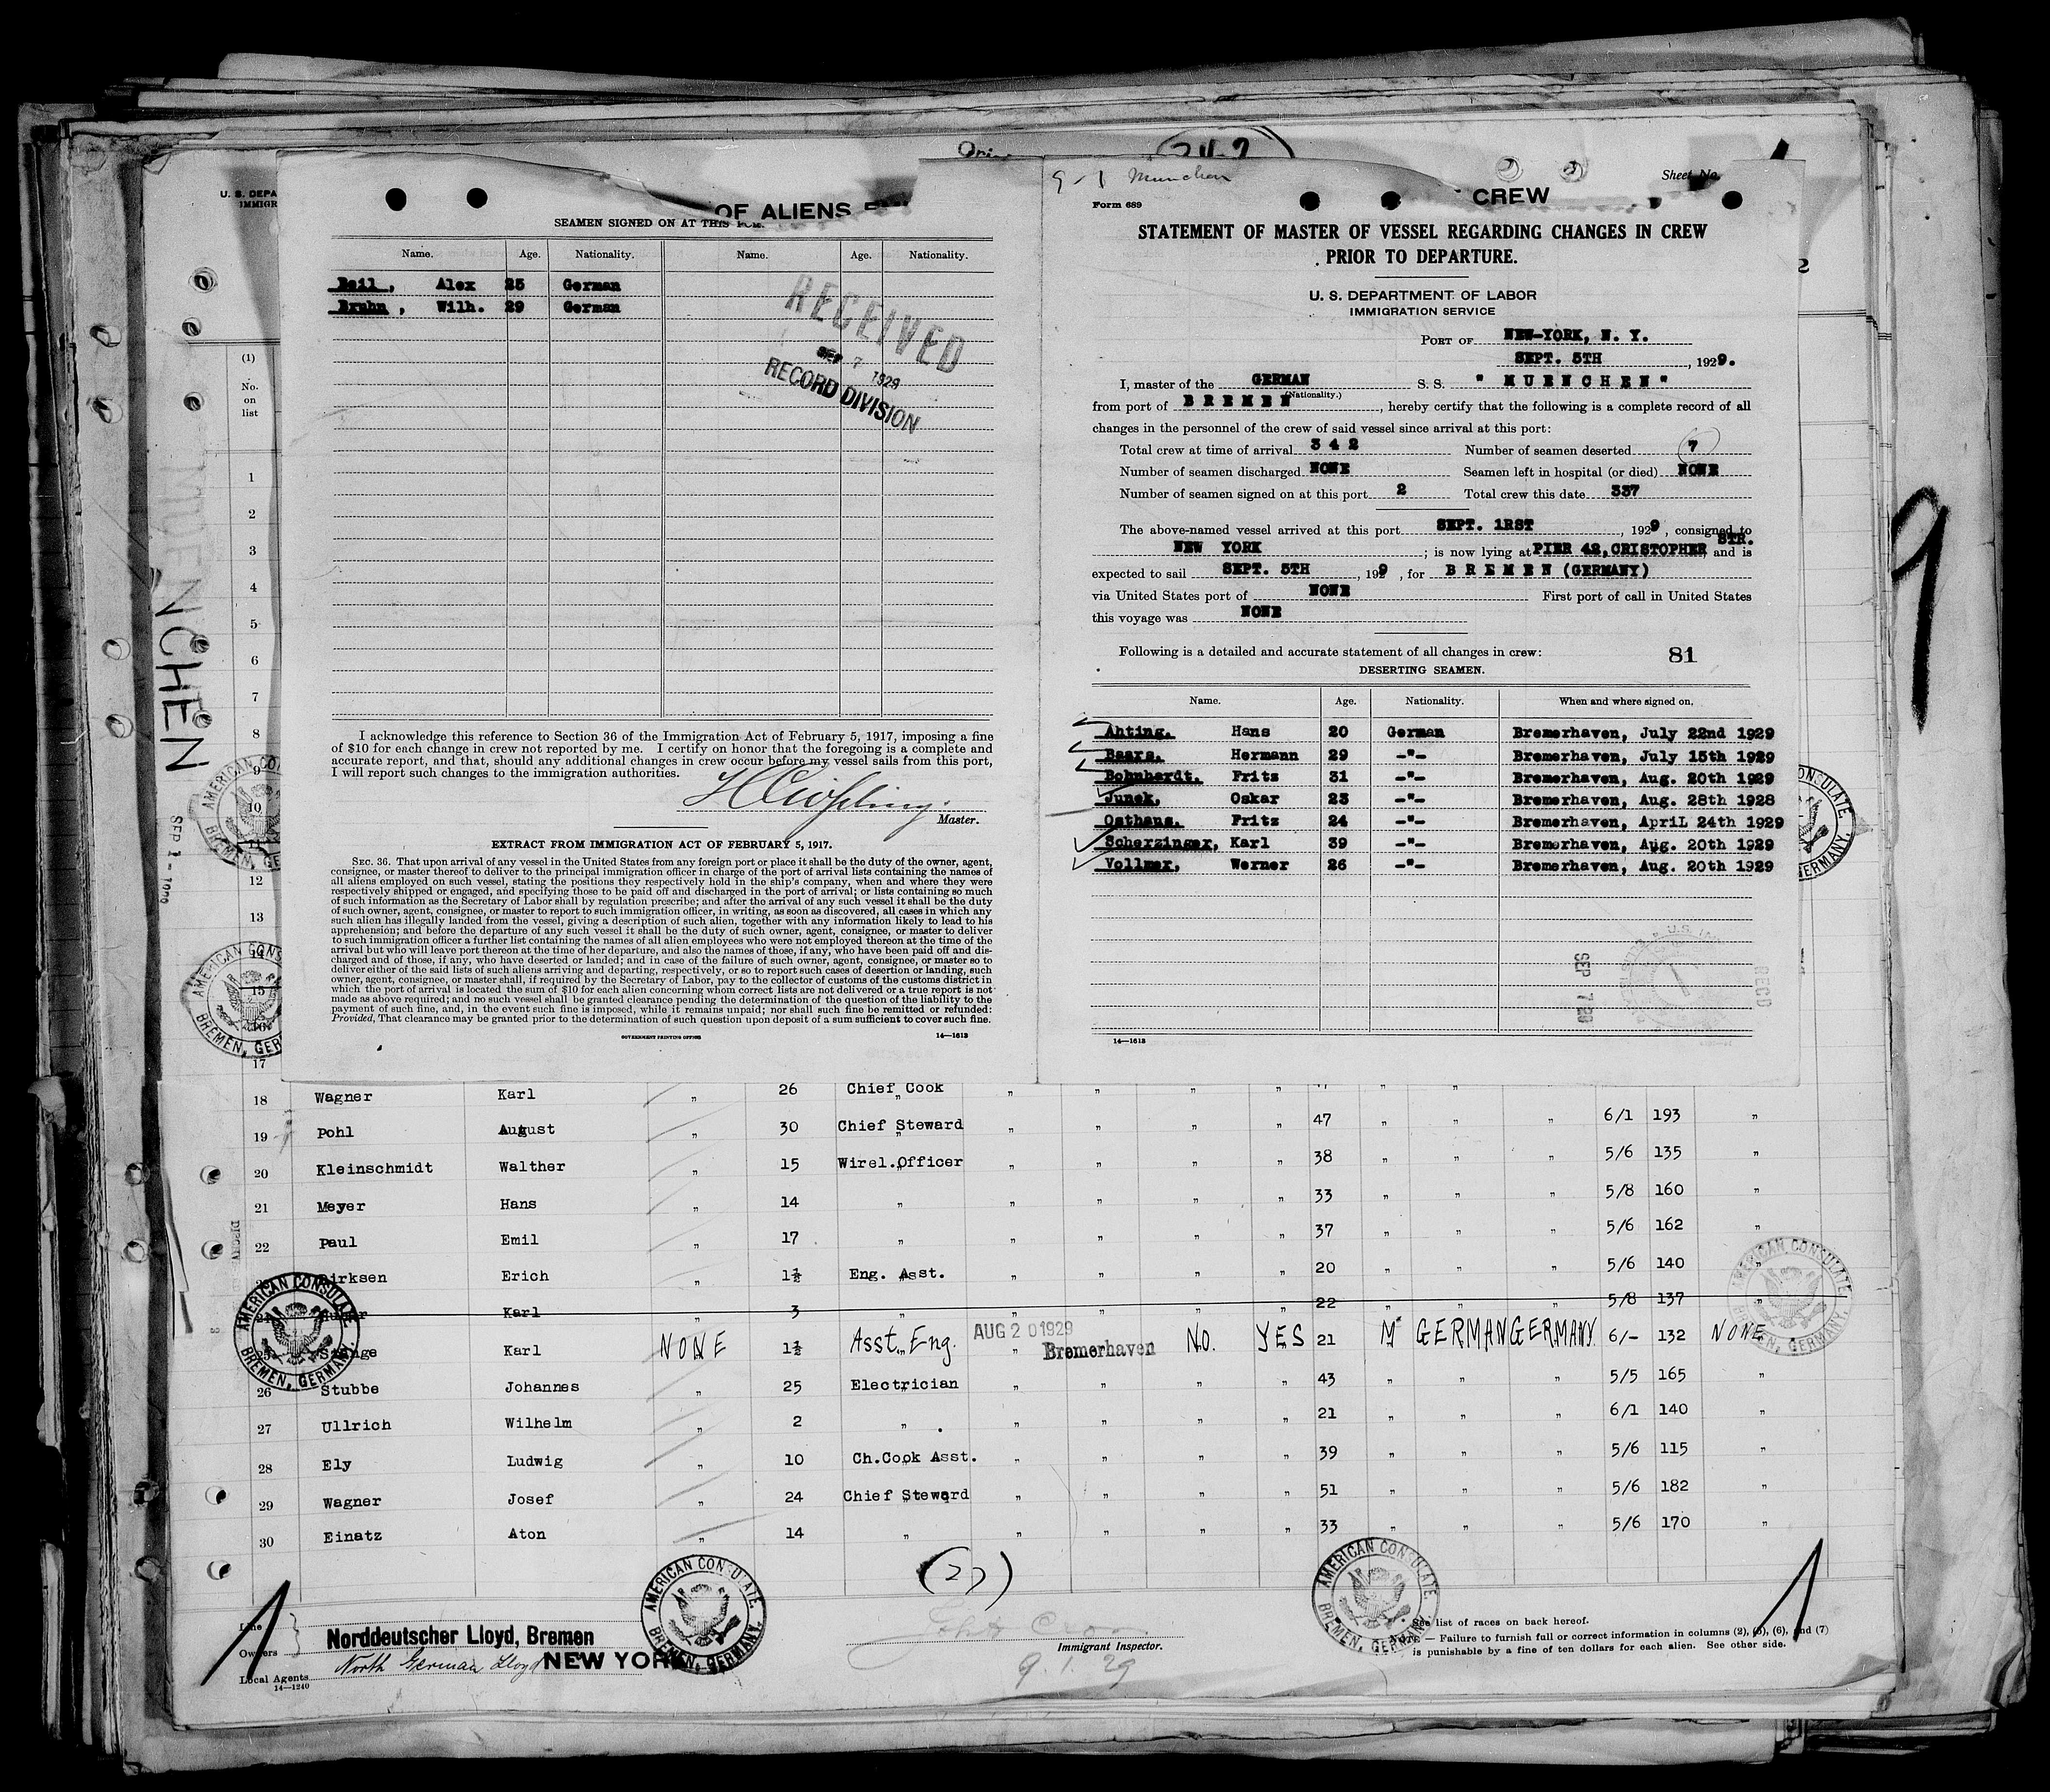 U. S. DEPA
IMMIGR
OF ALIENS
SEAMEN SIGNED ON AT THIS
Name. Age. Nationality. Name. Age. Nationality.
Beil, Alex 25 German
Bruhn, Wilh. 29 German
RECEIVED
SEP 7 1929
RECORD DIVISION
I acknowledge this reference to Section 36 of the Immigration Act of February 5, 1917, imposing a fine
of $10 for each change in crew not reported by me. I certify on honor that the foregoing is a complete and
accurate report, and that, should any additional changes in crew occur before my vessel sails from this port,
I will report such changes to the immigration authorities.
Master.
EXTRACT FROM IMMIGRATION ACT OF FEBRUARY 5, 1917.
SEC. 36. That upon arrival of any vessel in the United States from any foreign port or place it shall be the duty of the owner, agent,
consignee, or master thereof to deliver to the principal immigration officer in charge of the port of arrival lists containing the names of
all aliens employed on such vessel, stating the positions they respectively hold in the ship's company, when and where they were
respectively shipped or engaged, and specifying those to be paid off and discharged in the port of arrival; or lists containing so much
of such information as the Secretary of Labor shall by regulation prescribe; and after the arrival of any such vessel it shall be the duty
of such owner, agent, consignee, or master to report to such immigration officer, in writing, as soon as discovered, all cases in which any
such alien has illegally landed from the vessel, giving a description of such alien, together with any information likely to lead to his
apprehension; and before the departure of any such vessel it shall be the duty of such owner, agent, consignee, or master to deliver
to such immigration officer a further list containing the names of all alien employees who were not employed thereon at the time of the
arrival but who will leave port thereon at the time of her departure, and also the names of those, if any, who have been paid off and dis-
charged and of those, if any, who have deserted or landed; and in case of the failure of such owner, agent, consignee, or master so to
deliver either of the said lists of such aliens arriving and departing, respectively, or so to report such cases of desertion or landing, such
owner, agent, consignee, or master shall, if required by the Secretary of Labor, pay to the collector of customs of the customs district in
which the port of arrival is located the sum of $10 for each alien concerning whom correct lists are not delivered or a true report is not
made as above required; and no such vessel shall be granted clearance pending the determination of the question of the liability to the
payment of such fine, and, in the event such fine is imposed, while it remains unpaid; nor shall such fine be remitted or refunded:
Provided, That clearance may be granted prior to the determination of such question upon deposit of a sum sufficient to cover such fine.
GOVERNMENT PRINTING OFFICE 14—1613
9-1 Munchen
Sheet No.
Form 689
CREW
STATEMENT OF MASTER OF VESSEL REGARDING CHANGES IN CREW
PRIOR TO DEPARTURE.
U. S. DEPARTMENT OF LABOR
IMMIGRATION SERVICE
PORT OF NEW-YORK, N. Y.
SEPT. 5TH, 1929.
I, master of the GERMAN S. S. " M U E N C H E N "
(Nationality.)
from port of B R E M E N, hereby certify that the following is a complete record of all
changes in the personnel of the crew of said vessel since arrival at this port:
Total crew at time of arrival 3 4 2 Number of seamen deserted 7
Number of seamen discharged NONE Seamen left in hospital (or died) NONE
Number of seamen signed on at this port 2 Total crew this date 337
The above-named vessel arrived at this port SEPT. 1RST, 1929, consigned to
NEW YORK; is now lying at PIER 42, CRISTOPHER STR. and is
expected to sail SEPT. 5TH, 1929, for B R E M E N (GERMANY)
via United States port of NONE First port of call in United States
this voyage was NONE
Following is a detailed and accurate statement of all changes in crew: 81
DESERTING SEAMEN.
Name. Age. Nationality. When and where signed on.
Ahting. Hans 20 German Bremerhaven, July 22nd 1929
Baars. Hermann 29 -"- Bremerhaven, July 15th 1929
Bohnhardt. Fritz 31 -"- Bremerhaven, Aug. 20th 1929
Junek, Oskar 23 -"- Bremerhaven, Aug. 28th 1928
Osthaus. Fritz 24 -"- Bremerhaven, ApriL 24th 1929
Scherzinger, Karl 39 -"- Bremerhaven, Aug. 20th 1929
Vollmer, Werner 26 -"- Bremerhaven, Aug. 20th 1929
SEP 7 29
REC'D
14—1613
(1)
No.
on
list
1
2
3
4
5
6
7
8
9
10
11
12
13
14
15
16
17
MUENCHEN
SEP 1- 1929
AMERICAN CONSULATE
BREMEN, GERMANY.
9
18 Wagner Karl " 26 Chief Cook " " " " 47 " "
19 Pohl August " 30 Chief Steward " " " " 47 " " " 6/1 193 "
20 Kleinschmidt Walther " 15 Wirel.Officer " " " " 38 " " " 5/6 135 "
21 Meyer Hans " 14 " " " " " 33 " " " 5/8 160 "
22 Paul Emil " 17 " " " " " 37 " " " 5/6 162 "
23 Dirksen Erich " 1½ Eng. Asst. " " " " 20 " " " 5/6 140 "
24 Karl " 3 " " " " " 22 " " " 5/8 137 "
25 Karl NONE 1½ Asst. Eng. AUG 20 1929 Bremerhaven NO. YES 21 M GERMAN GERMANY 6/- 132 NONE
26 Stubbe Johannes " 25 Electrician " " " " 43 " " " 5/5 165 "
27 Ullrich Wilhelm " 2 " " " " " 21 " " " 6/1 140 "
28 Ely Ludwig " 10 Ch.Cook Asst. " " " " 39 " " " 5/6 115 "
29 Wagner Josef " 24 Chief Steward " " " " 51 " " " 5/6 182 "
30 Einatz Aton " 14 " " " " " 33 " " " 5/6 170 "
(27)
AMERICAN CONSULATE
BREMEN, GERMANY.
AMERICAN CONSULATE
BREMEN, GERMANY.
Line
Owners
Norddeutscher Lloyd, Bremen
Local Agents North German Lloyd NEW YORK
14—1240
Immigrant Inspector.
9. 1. 29
See list of races on back hereof.
NOTE.—Failure to furnish full or correct information in columns (2), (5), (6), and (7)
is punishable by a fine of ten dollars for each alien. See other side.